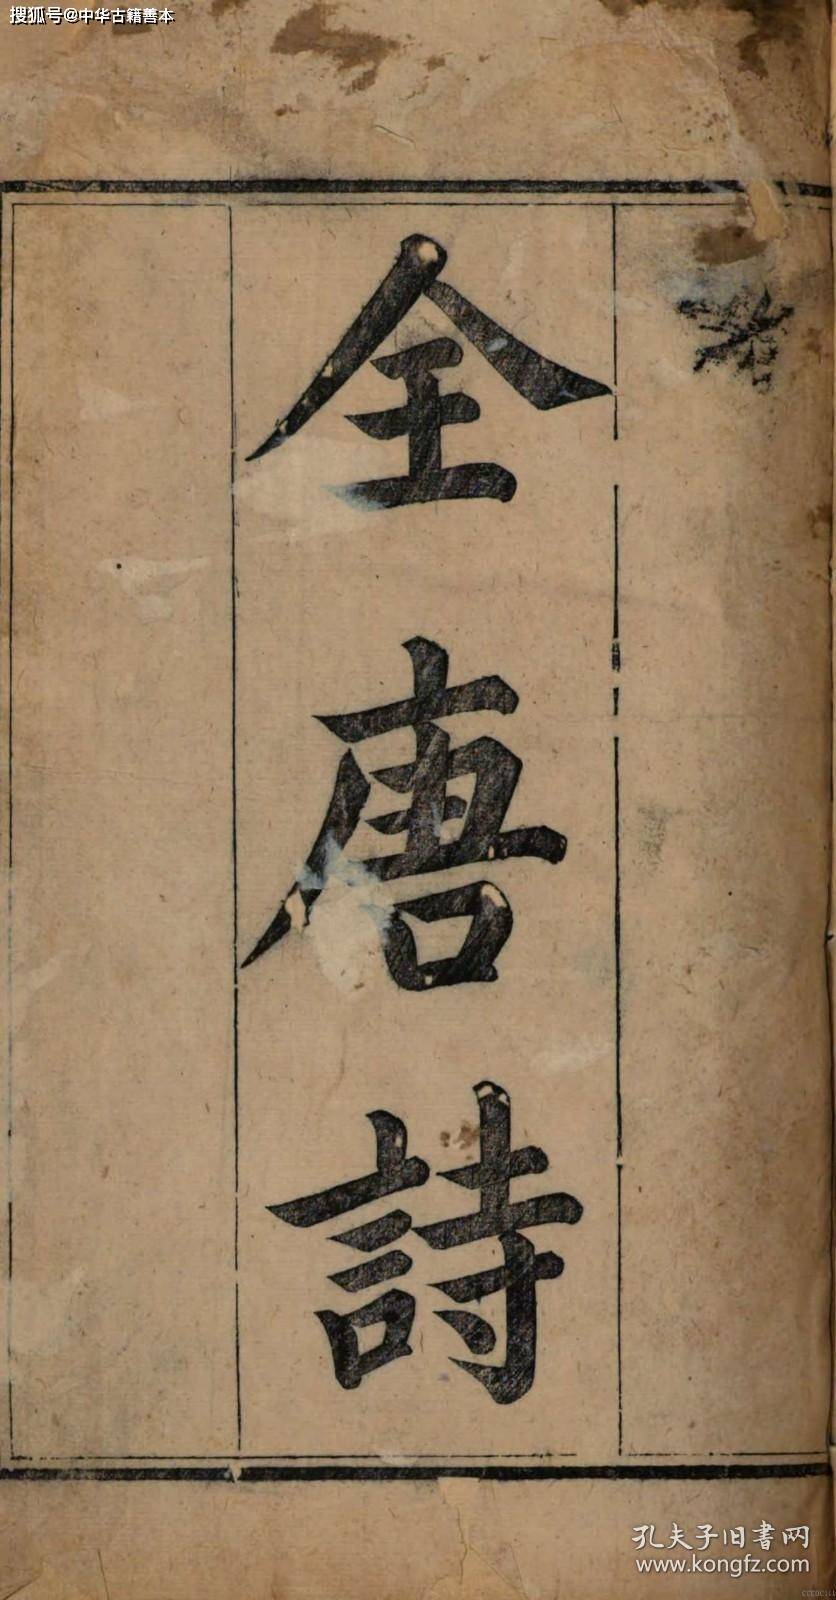 搜狐号@中华古籍善本
全唐詩
孔夫子旧书网
www.kongfz.com